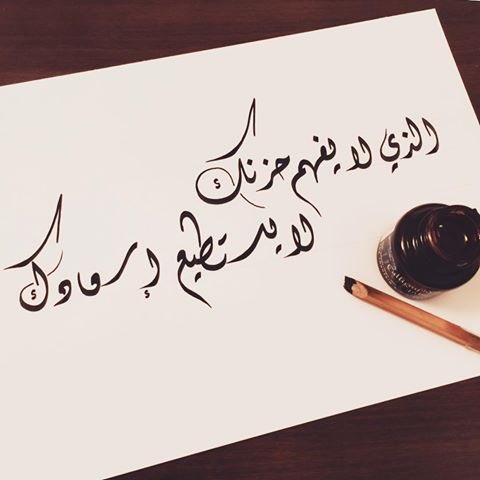 الذي لا يفهم حزنك
لا يستطيع إسعادك